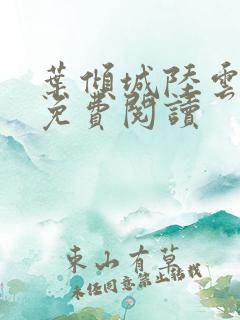 葉傾城陸雲
免費閱讀
東山有草
未经同意禁止转载